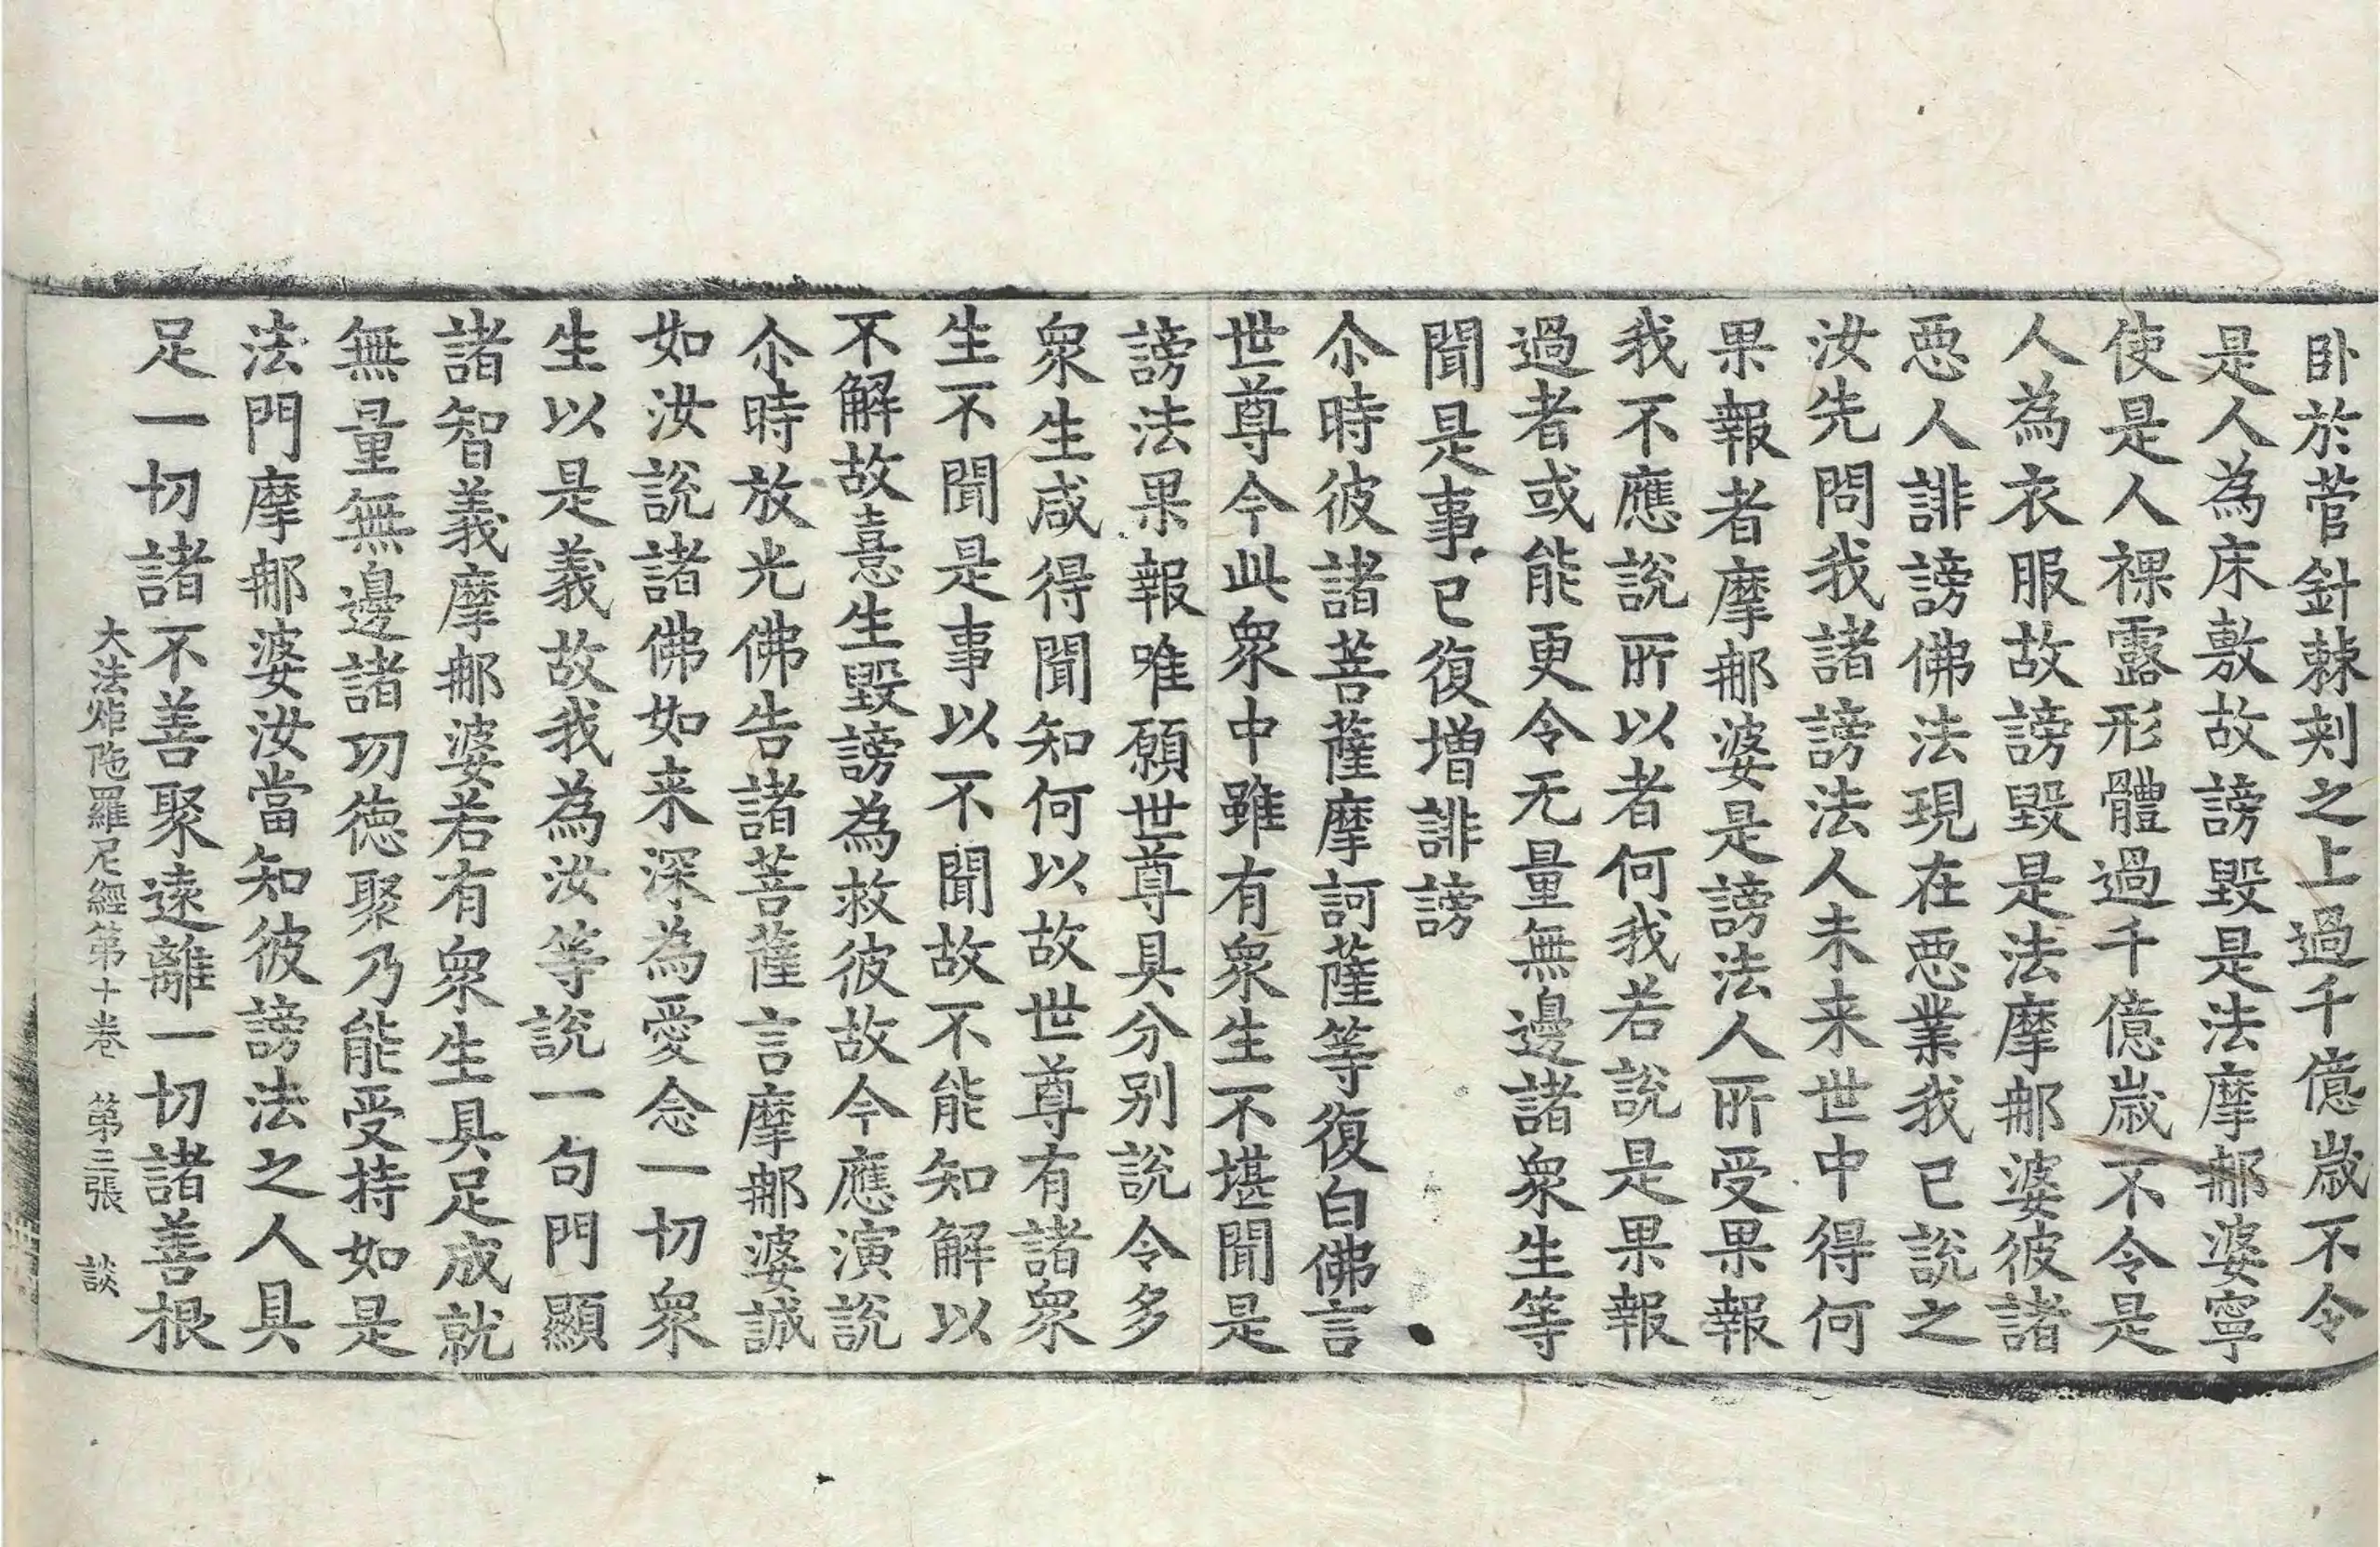 卧於菅針棘刾之上過千億歲不令
是人為床敷故謗毀是法摩𨙻婆寧
使是人裸露形體過千億歲不令是
人為衣服故謗毀是法摩𨙻婆彼諸
悪人誹謗佛法現在悪業我已說之
汝先問我諸謗法人未来世中得何
果報者摩𨙻婆是謗法人所受果報
我不應說所以者何我若說是果報
過者或能更令无量無邊諸衆生等
聞是事已復增誹謗
尒時彼諸菩薩摩訶薩等復白佛言
世尊今此衆中雖有衆生不堪聞是
謗法果報唯願世尊具分别說令多
衆生咸得聞知何以故世尊有諸衆
生不聞是事以不聞故不能知解以
不解故憙生毀謗為救彼故今應演說
尒時放光佛告諸菩薩言摩𨙻婆誠
如汝說諸佛如来深為愛念一切衆
生以是義故我為汝等說一句門顯
諸智義摩𨙻婆若有衆生具足成就
無量無邊諸功徳聚乃能受持如是
法門摩𨙻婆汝當知彼謗法之人具
足一切諸不善聚遠離一切諸善根
大法炬陁羅尼經第十卷 第三張 談